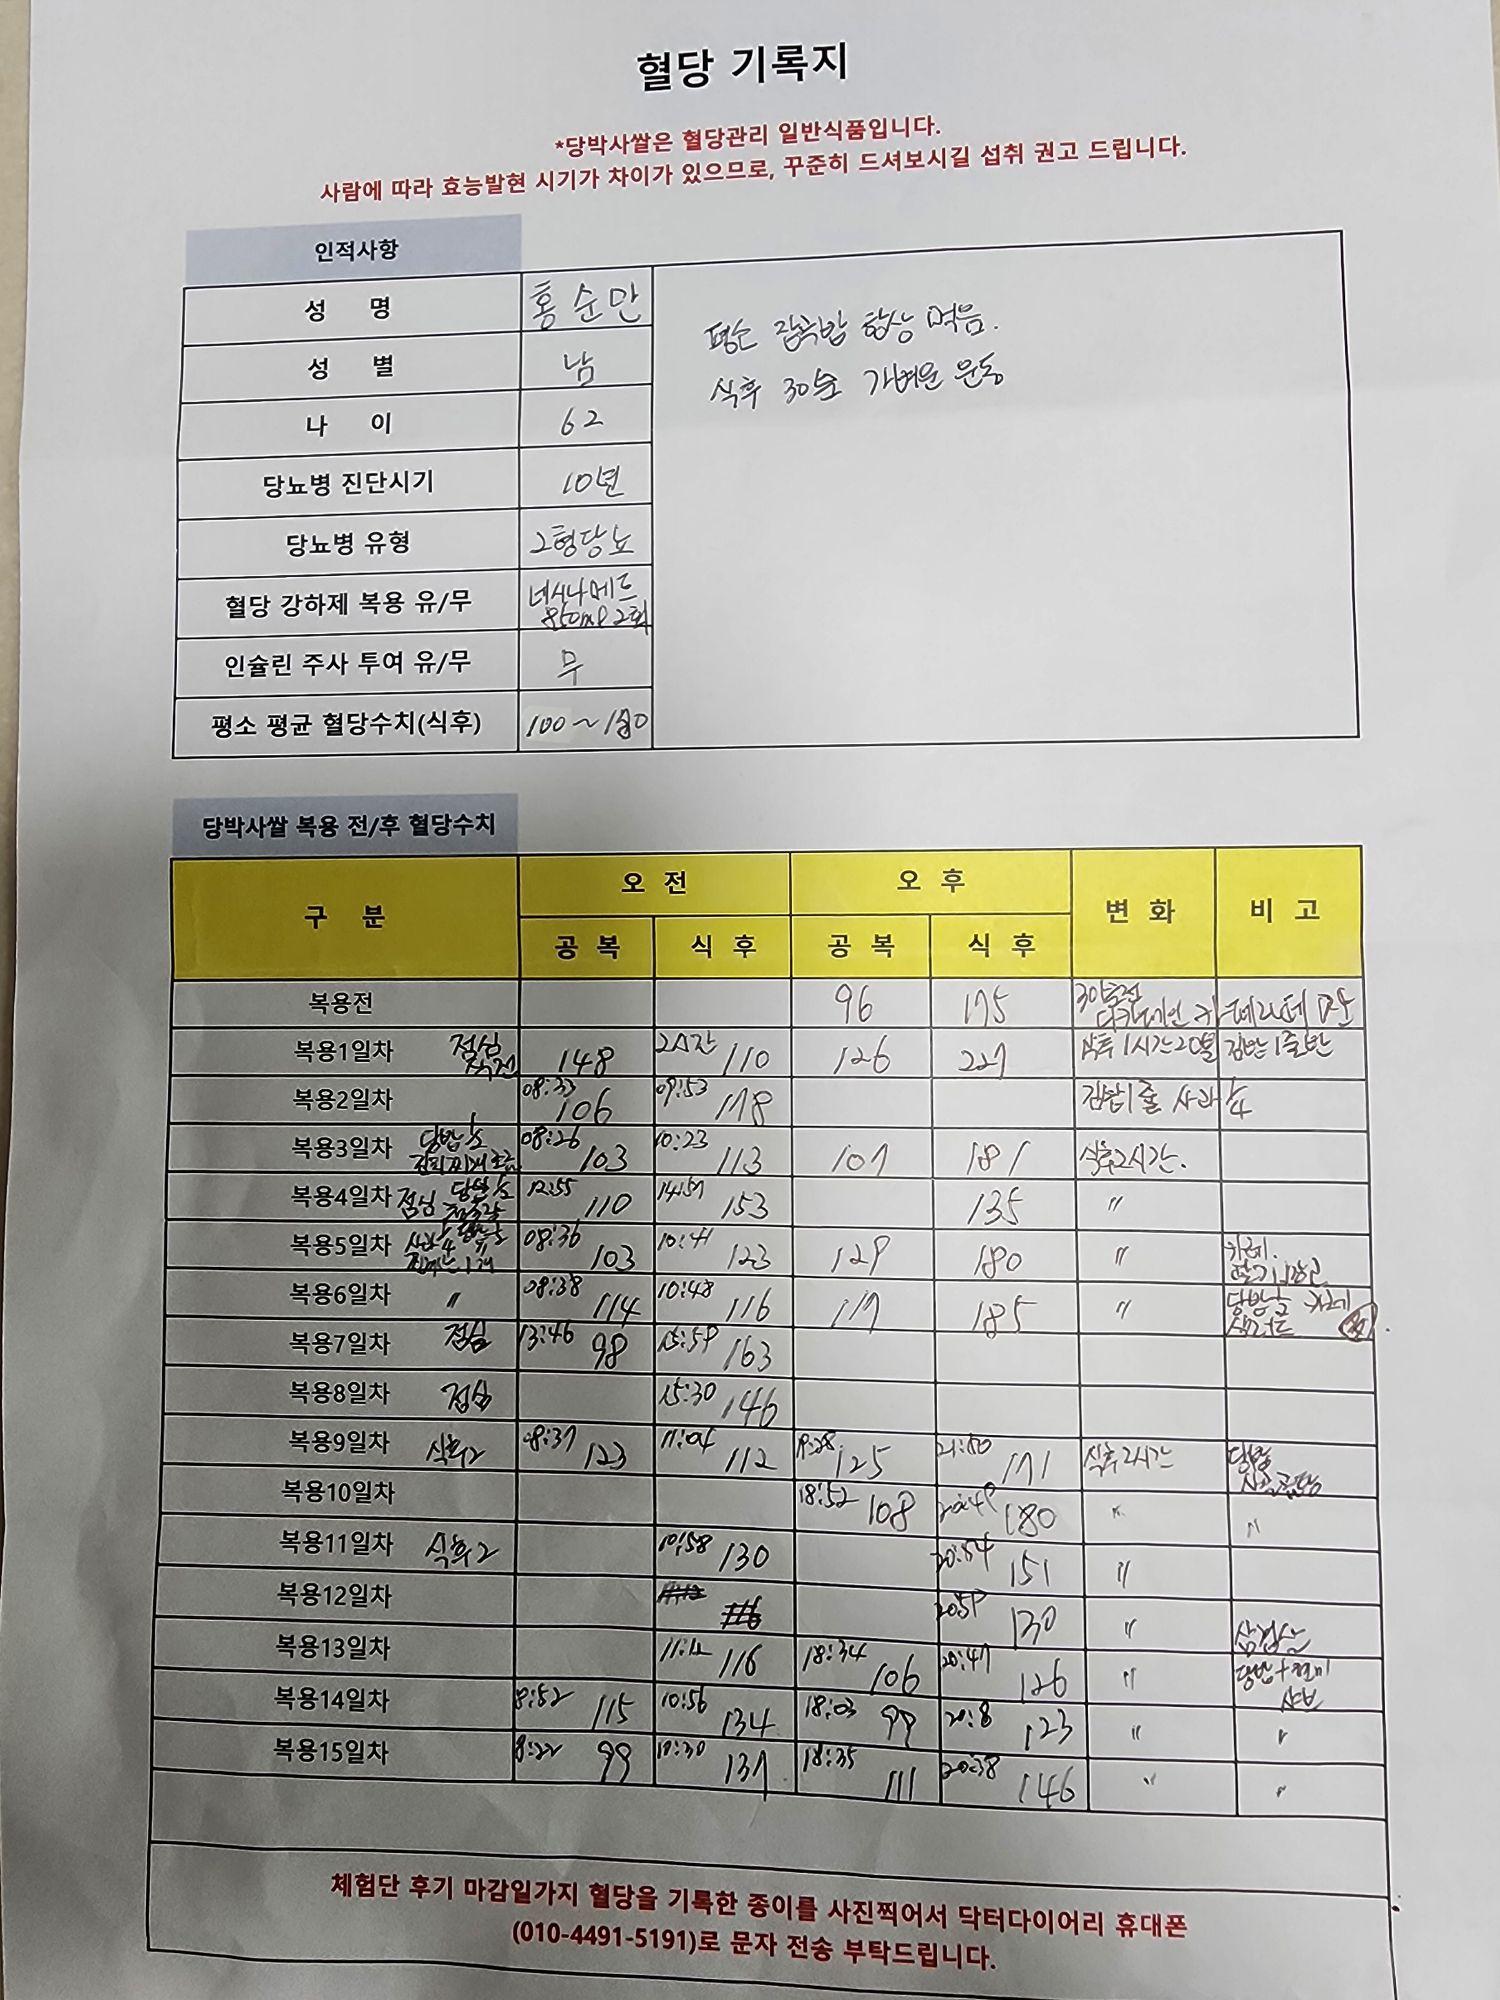 혈당 기록지
*당박사쌀은 혈당관리 일반식품입니다.
사람에 따라 효능발현 시기가 차이가 있으므로, 꾸준히 드셔보시길 섭취 권고 드립니다.
인적사항
성 명 홍순만
성 별 남
나 이 62
당뇨병 진단시기 10년
당뇨병 유형 2형당뇨
혈당 강하제 복용 유/무 네시나메트 850mg 2회
인슐린 주사 투여 유/무 무
평소 평균 혈당수치(식후) 100~180
평소 잡곡밥 항상 먹음.
식후 30분 가벼운 운동
당박사쌀 복용 전/후 혈당수치
구 분 오 전 오 후 변 화 비 고
공 복 식 후 공 복 식 후
복용전 96 175 30분전
복용1일차 점심 식전 148 2시간 110 126 227 식후 1시간20분 김밥1줄반
복용2일차 08:33 106 09:53 178 김밥1줄 사과 1/4
복용3일차 08:26 103 10:23 113 107 181 식후2시간.
복용4일차 점심 12:55 110 14:57 153 135 〃
복용5일차 08:36 103 10:41 123 129 180 〃 카레.
복용6일차 〃 08:38 114 10:48 116 117 185 〃 카레 샐러드
복용7일차 점심 13:46 98 15:59 163
복용8일차 점심 15:30 146
복용9일차 식후2 08:37 123 11:04 112 19:28 125 21:50 171 식후2시간 당밥
복용10일차 18:52 108 20:49 180 〃 〃
복용11일차 식후2 10:58 130 20:54 151 〃
복용12일차 20:59 130 〃 삼겹살
복용13일차 11:12 116 18:34 106 20:47 126 〃 당밥+현미
복용14일차 8:52 115 10:56 134 18:03 99 20:8 123 〃 〃
복용15일차 8:22 99 10:30 137 18:35 111 20:38 146 〃 〃
체험단 후기 마감일가지 혈당을 기록한 종이를 사진찍어서 닥터다이어리 휴대폰
(010-4491-5191)로 문자 전송 부탁드립니다.